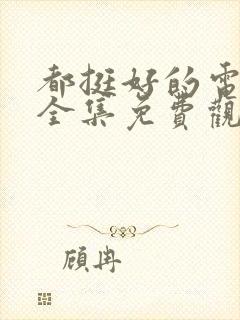 都挺好的電
全集免費觀
顧冉